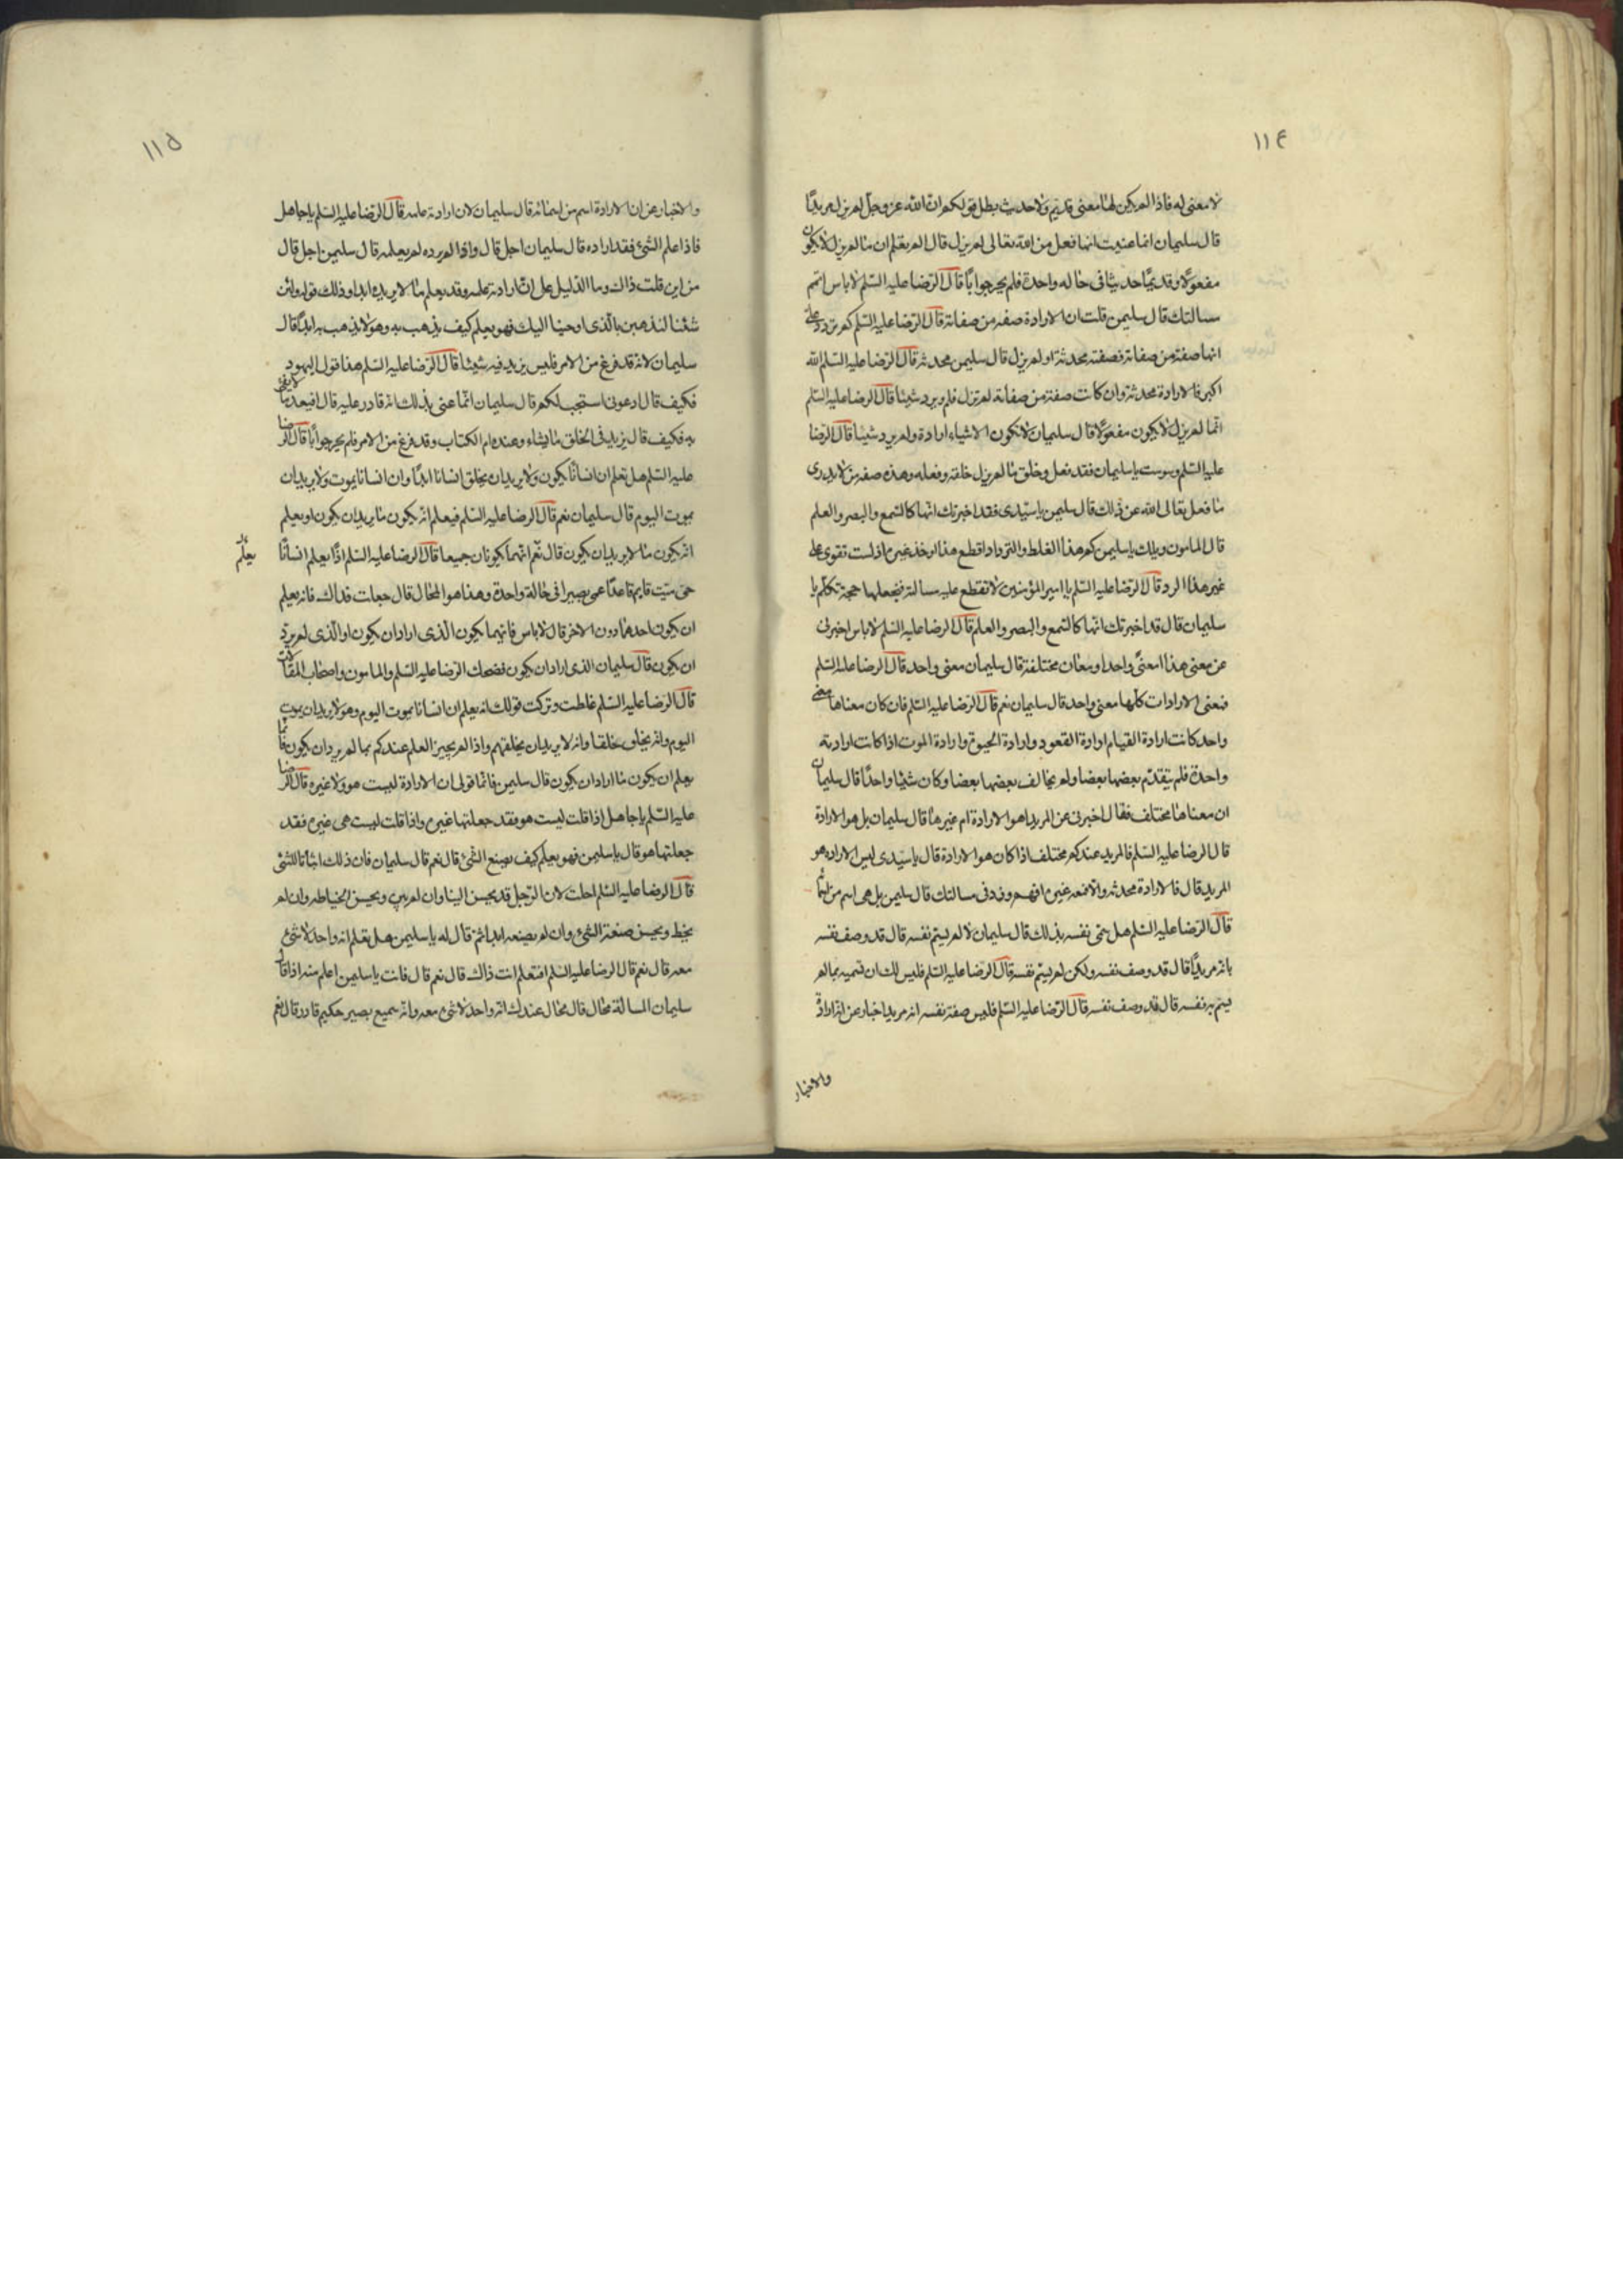 ١١٤
لا معنى له فاذا لم يكن لها معنى قديم ولا حديث بطل قولكم ان الله عز وجل لم يزل مريدًا
قال سليمان انما عنيت انها فعل من الله تعالى لم يزل قال الم تعلم ان ما لم يزل لا يكون
مفعولًا وقديمًا حديثا فى حاله واحدة فلم يحر جوابًا قال الرضا عليه السّلم لا باس اتمم
مسالتك قال سليمن قلت ان الارادة صفه من صفاته قال الرضا عليه السّلم كم تردد علىّ
انها صفة من صفاته فصفته محدثة او لم يزل قال سليمن محدثه قال الرضا عليه السّلم الله
اكبر فالارادة محدثة وان كانت صفة من صفاته لم تزل فلم يرد شيئا قال الرضا عليه السّلم
انما لم يزل لا يكون مفعولًا قال سليمان لا تكون الاشياء ارادة ولم يرد شيئا قال الرضا
عليه السّلم وسوست يا سليمان فقد فعل وخلق ما لم يزل خلقه وفعله وهذه صفه من لا يدرى
ما فعل تعالى الله عن ذلك قال سليمن يا سيّدى فقد اخبرتك انها كالسّمع والبصر والعلم
قال المامون ويلك يا سليمن كم هذا الغلط والترداد اقطع هذا وخذ غيره اذ لست تقوى على
غير هذا الرد قال الرضا عليه السّلم يا امير المؤمنين لا تقطع عليه مسالته فيجعلها حجة تكلّم يا
سليمان قال قد اخبرتك انها كالسّمع والبصر والعلم قال الرضا عليه السّلم لا باس اخبرنى
عن معنى هذا امعنىً واحد او معان مختلفة قال سليمان معنى واحد قال الرضا عليه السّلم
فمعنى الارادات كلّها معنى واحد قال سليمان نعم قال الرضا عليه السّلم فان كان معناها معنى
واحد كانت ارادة القيام ارادة القعود وارادة الحيوة وارادة الموت اذا كانت ارادته
واحدة فلم يتقدّم بعضها بعضا ولم يخالف بعضها بعضا وكان شيئا واحدًا قال سليمان
ان معناها مختلف فقال اخبرنى عن المريد اهو الارادة ام غيرها قال سليمان بل هو الارادة
قال الرضا عليه السّلم فالمريد عندكم مختلف اذا كان هو الارادة قال يا سيّدى ليس الارادة هو
المريد قال فالارادة محدثه والا فمعه غيره افهم وزد فى مسالتك قال سليمن بل هى اسم من اسمائه
قال الرّضا عليه السّلم هل سمّى نفسه بذلك قال سليمان لا لم يسمّ نفسه قال قد وصف نفسه
بانه مريدًا قال قد وصف نفسه ولكن لم يسمّ نفسه قال الرضا عليه السّلم فليس لك ان تسميه بما لم
يسم به نفسه قال قد وصف نفسه قال الرّضا عليه السّلم فليس صفة نفسه انه مريد اخبار عن انه ارادة
والاخبار
١١٥
والاخبار عن ان الارادة اسم من اسمائه قال سليمان لان ارادته علمه قال الرّضا عليه السّلم يا جاهل
فاذا علم الشئ فقد اراده قال سليمان اجل قال واذا لم يرده لم يعلمه قال سليمن اجل قال
من اين قلت ذاك وما الدّليل على انّ ارادته علمه وقد يعلم ما لا يريده ابدا وذلك قوله ولئن
شئنا لنذهبن بالّذى اوحينا اليك فهو يعلم كيف يذهب به وهو لا يذهب به ابدًا قال
سليمان لانه قد فرغ من الامر فليس يزيد فيه شيئا قال الرّضا عليه السّلم هذا قول اليهود
فكيف قال ادعونى استجب لكم قال سليمان انّما عنى بذلك انه قادر عليه قال افيعد ما لا يفى
به فكيف قال يزيد فى الخلق ما يشاء وعنده ام الكتاب وقد فرغ من الامر فلم يحر جوابًا قال الرضا
عليه السّلم هل تعلم ان انسانًا يكون ولا يريد ان يخلق انسانا ابدًا وان انسانا يموت ولا يريد ان
يموت اليوم قال سليمان نعم قال الرضا عليه السّلم فيعلم انّه يكون ما يريد ان يكون او يعلم
انه يكون ما لا يريد ان يكون قال نعم انهما يكونان جميعا قال الرضا عليه السّلم اذًا يعلم انسانًا
يعلم
حىّ ميّت قايم قاعدًا عمى بصيرا فى حالة واحدة وهذا هو المحال قال جعلت فداك فانه يعلم
ان يكون احدهما دون الاخر قال لا باس فايّهما يكون الّذى اراد ان يكون او الّذى لم يرد
ان يكون قال سليمان الذى اراد ان يكون فضحك الرّضا عليه السّلم والمامون واصحاب المقالات
قال الرضا عليه السّلم غلطت وتركت قولك انه يعلم ان انسانا يموت اليوم وهو لا يريد ان يموت
اليوم وانه يخلق خلقا وانه لا يريد ان يخلقهم واذا لم يجز العلم عندكم بما لم يرد ان يكون فانما
يعلم ان يكون ما اراد ان يكون قال سليمن فانّما قولى ان الارادة ليست هو ولا غيره قال الرضا
عليه السّلم يا جاهل اذا قلت ليست هو فقد جعلتها غيره واذا قلت ليست هى غيره فقد
جعلتها هو قال يا سليمن فهو يعلم كيف يصنع الشئ قال نعم قال سليمان فان ذلك اثباتا للشئ
قال الرضا عليه السّلم احلت لان الرّجل قد يحسن البنا وان لم يبن ويحسن الخياطه وان لم
يخط ويحسن صنعة الشئ وان لم يصنعه ابدا ثمّ قال له يا سليمن هل تعلم انه واحد لا شئ
معه قال نعم قال الرضا عليه السّلم افتعلم انت ذاك قال نعم قال فانت يا سليمن اعلم منه اذا قال
سليمان المسالة محال قال محال عندك انّه واحد لا شئ معه وانّه سميع بصير حكيم قادر قال نعم